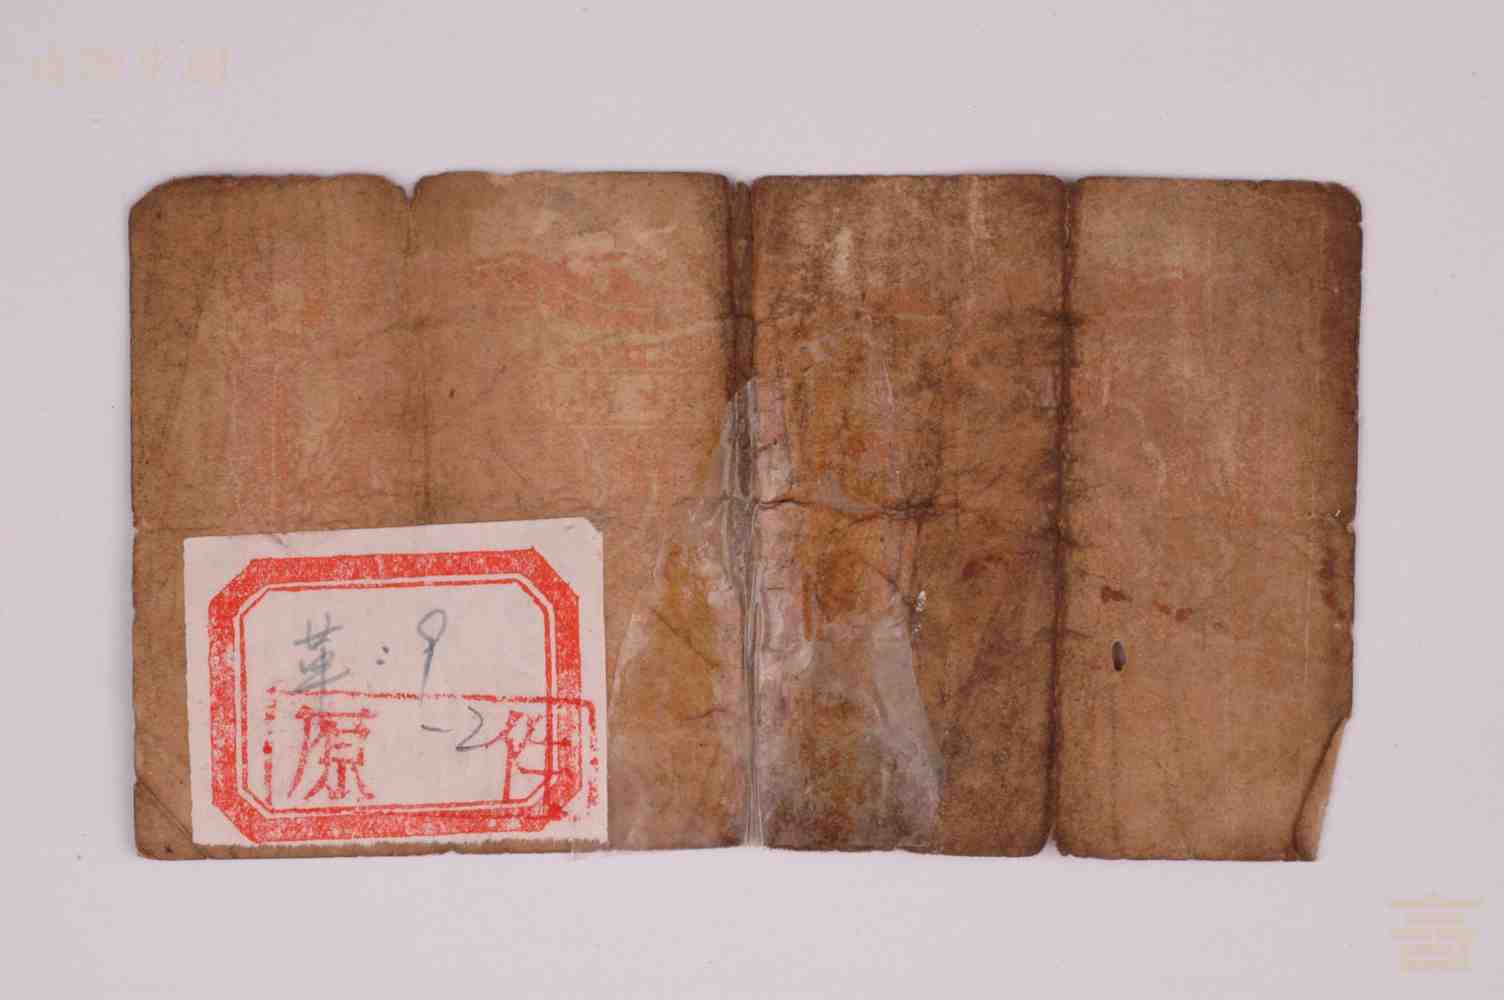 革:9
-2
原件